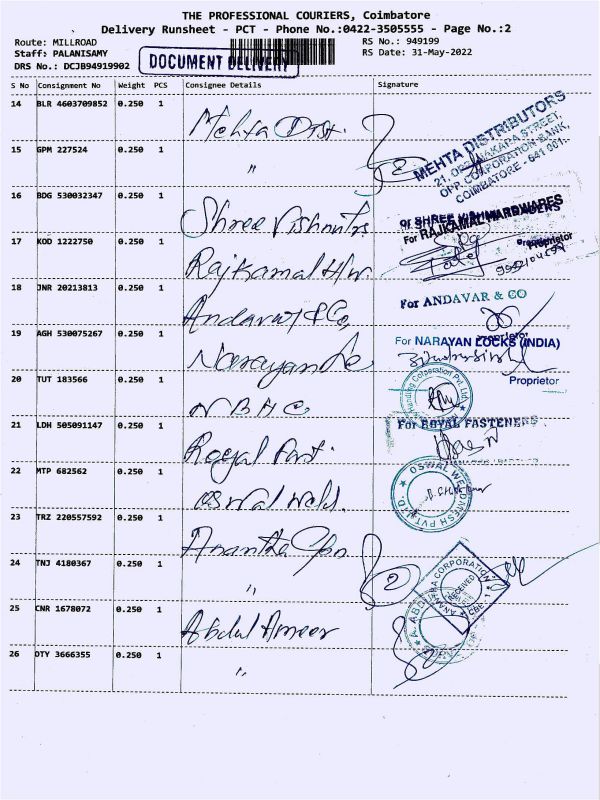 THE PROFESSIONAL COURIERS, Coimbatore
Delivery Runsheet - PCT - Phone No.:0422-3505555 - Page No.:2
Route: MILLROAD RS No.: 949199
Staff: PALANISAMY RS Date: 31-May-2022
DRS No.: DCJB94919902 DOCUMENT DELIVERY
S No Consignment No Weight PCS Consignee Details Signature
14 BLR 4603709852 0.250 1 Mehta Dist.
MEHTA DISTRIBUTORS
STREET,
OPP. CORPORATION BANK,
COIMBATORE - 641 001.
15 GPM 227524 0.250 1 "
16 BDG 530032347 0.250 1 Shree
17 KOD 1222750 0.250 1 Rajkamal H/w.
For RAJKAMAL HARDWARES
Proprietor
18 JNR 20213813 0.250 1 Andavar & Co,
For ANDAVAR & CO
Proprietor
19 AGH 530075267 0.250 1
For NARAYAN LOCKS (INDIA)
Proprietor
20 TUT 183566 0.250 1
21 LDH 505091147 0.250 1 Royal
For ROYAL FASTENERS
22 MTP 682562 0.250 1 Oswal Weld.
OSWAL WELDMESH PVT LTD.
23 TRZ 220557592 0.250 1
24 TNJ 4180367 0.250 1 "
CORPORATION
RECEIVED
25 CNR 1678072 0.250 1 Abdul Ameer
26 DTY 3666355 0.250 1 "